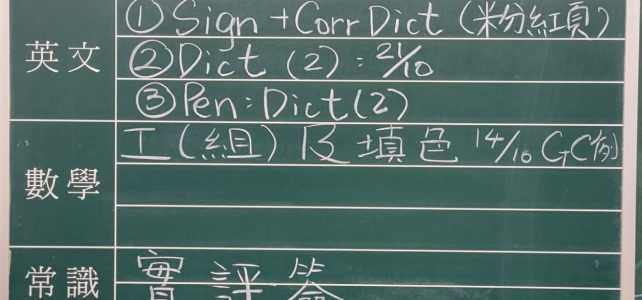 英文
①Sign+Corr Dict (粉紅頁)
②Dict (2):21/10
③Pen:Dict(2)
數學
工(組)及填色 14/10 GC例)
常識
實評簽